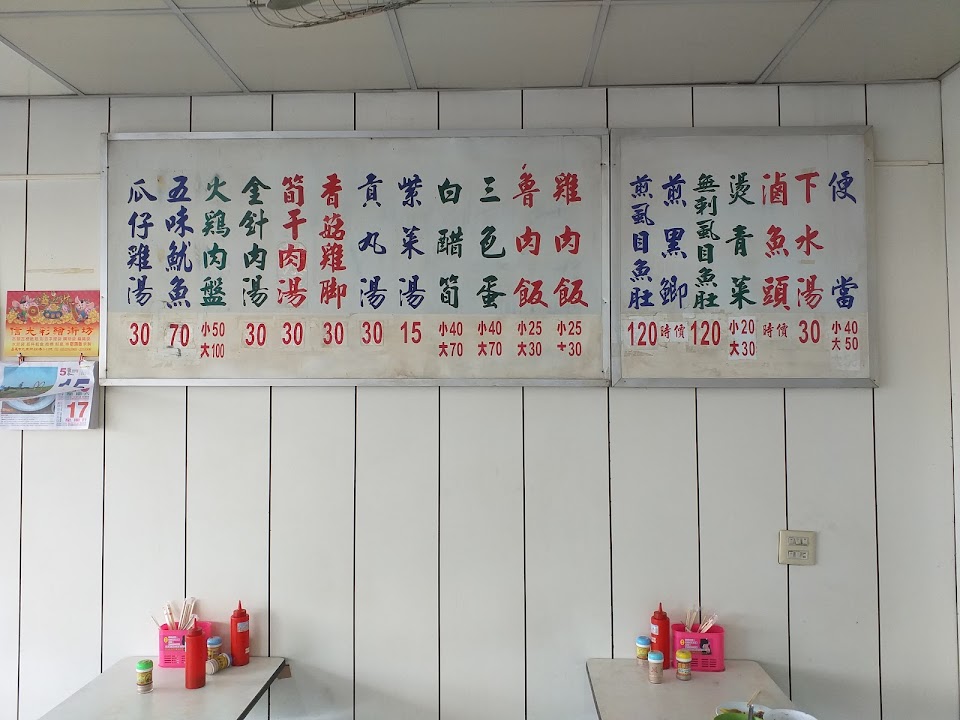 便當 小40 大50
下水湯 30
滷魚頭 時價
燙青菜 小20 大30
無刺虱目魚肚 120
煎黑鯽 時價
煎虱目魚肚 120
雞肉飯 小25 大30
魯肉飯 小25 大30
三色蛋 小40 大70
白醋筍 小40 大70
紫菜湯 15
貢丸湯 30
香菇雞腳 30
筍干肉湯 30
金針肉湯 30
火鷄肉盤 小50 大100
五味魷魚 70
瓜仔雞湯 30
信大彩繪術坊
5
15
17